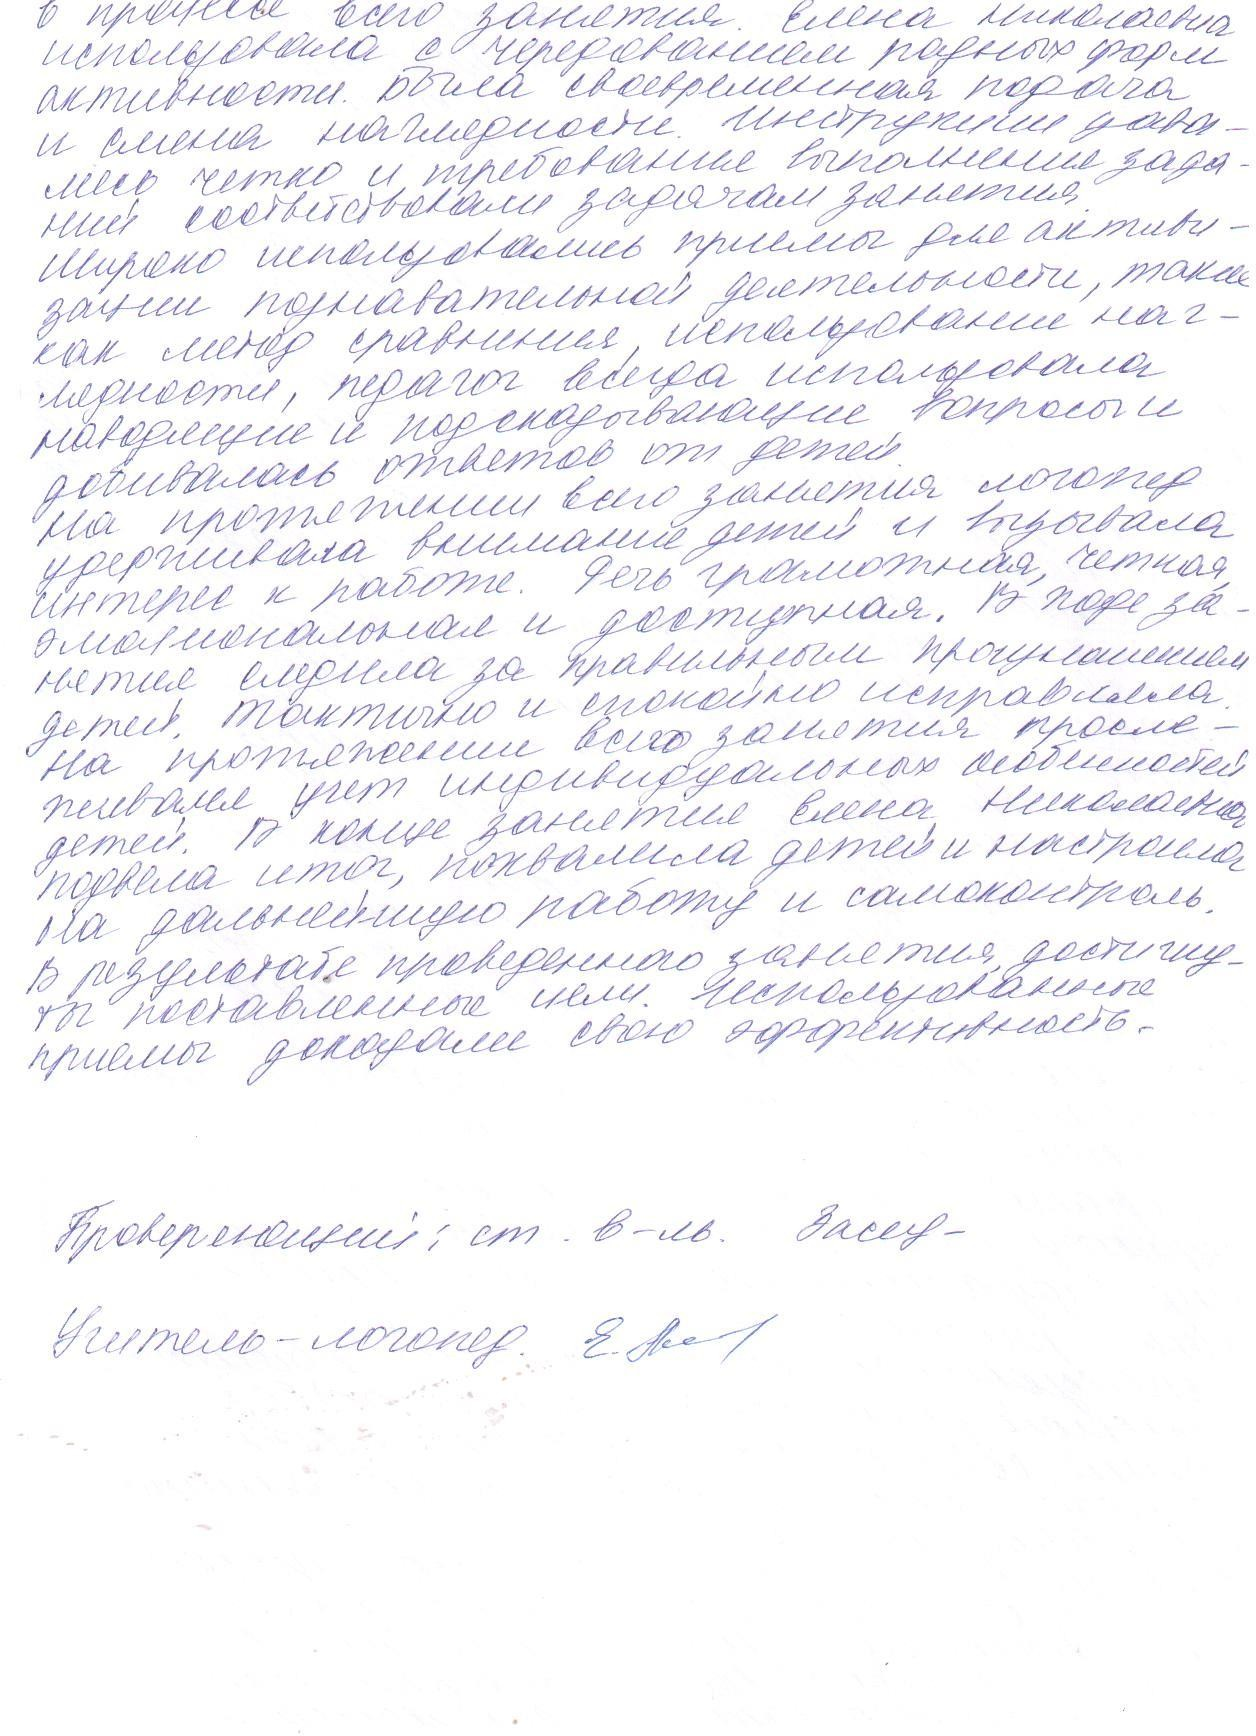 в процессе всего занятия. Елена Николаевна
использовала с чередованием разных форм
активности. Была своевременная подача
и смена наглядности. Инструкции дава-
лись четко и требование выполнение зада-
ний соответствовали задачам занятия.
Широко использовались приемы для активи-
зации познавательной деятельности, такие
как метод сравнения, использование наг-
лядности, педагог всегда использовала
наводящие и подсказывающие вопросы и
добивалась ответов от детей.
На протяжении всего занятия логопед
удерживала внимание детей и вызывала
интерес к работе. Речь грамотная, четкая,
эмоциональная и доступная. В ходе за-
нятия следила за правильным произношением
детей. Тактично и спокойно исправляла.
На протяжении всего занятия просле-
живался учет индивидуальных особенностей
детей. В конце занятия Елена Николаевна
подвела итог, похвалила детей и настроила
на дальнейшую работу и самоконтроль.
В результате проведенного занятия, достигну-
ты поставленные цели. Использованные
приемы доказали свою эффективность.
Проверяющий: ст. в-ль.
Учитель-логопед. Е.